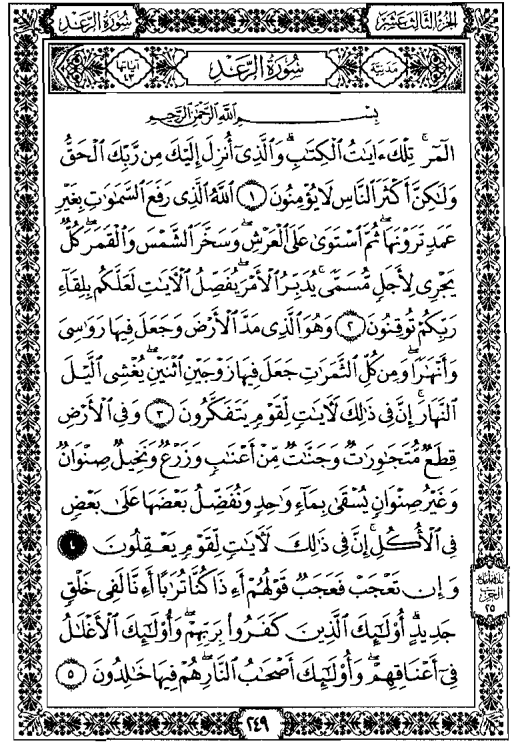 الجزء الثالث عشر
سورة الرعد
مدنية
سُورَةُ الرَّعْدِ
آياتها ٤٣
بِسْمِ اللَّهِ الرَّحْمَٰنِ الرَّحِيمِ
الٓمٓر ۚ تِلْكَ ءَايَٰتُ ٱلْكِتَٰبِ ۗ وَٱلَّذِىٓ أُنزِلَ إِلَيْكَ مِن رَّبِّكَ ٱلْحَقُّ
وَلَٰكِنَّ أَكْثَرَ ٱلنَّاسِ لَا يُؤْمِنُونَ ١ ٱللَّهُ ٱلَّذِى رَفَعَ ٱلسَّمَٰوَٰتِ بِغَيْرِ
عَمَدٍ تَرَوْنَهَا ۖ ثُمَّ ٱسْتَوَىٰ عَلَى ٱلْعَرْشِ ۖ وَسَخَّرَ ٱلشَّمْسَ وَٱلْقَمَرَ ۖ كُلٌّ
يَجْرِى لِأَجَلٍ مُّسَمًّى ۚ يُدَبِّرُ ٱلْأَمْرَ يُفَصِّلُ ٱلْءَايَٰتِ لَعَلَّكُم بِلِقَآءِ
رَبِّكُمْ تُوقِنُونَ ٢ وَهُوَ ٱلَّذِى مَدَّ ٱلْأَرْضَ وَجَعَلَ فِيهَا رَوَٰسِىَ
وَأَنْهَٰرًا ۖ وَمِن كُلِّ ٱلثَّمَرَٰتِ جَعَلَ فِيهَا زَوْجَيْنِ ٱثْنَيْنِ ۖ يُغْشِى ٱلَّيْلَ
ٱلنَّهَارَ ۚ إِنَّ فِى ذَٰلِكَ لَءَايَٰتٍ لِّقَوْمٍ يَتَفَكَّرُونَ ٣ وَفِى ٱلْأَرْضِ
قِطَعٌ مُّتَجَٰوِرَٰتٌ وَجَنَّٰتٌ مِّنْ أَعْنَٰبٍ وَزَرْعٌ وَنَخِيلٌ صِنْوَانٌ
وَغَيْرُ صِنْوَانٍ يُسْقَىٰ بِمَآءٍ وَٰحِدٍ وَنُفَضِّلُ بَعْضَهَا عَلَىٰ بَعْضٍ
فِى ٱلْأُكُلِ ۚ إِنَّ فِى ذَٰلِكَ لَءَايَٰتٍ لِّقَوْمٍ يَعْقِلُونَ ٤
وَإِن تَعْجَبْ فَعَجَبٌ قَوْلُهُمْ أَءِذَا كُنَّا تُرَٰبًا أَءِنَّا لَفِى خَلْقٍ
جَدِيدٍ ۗ أُو۟لَٰٓئِكَ ٱلَّذِينَ كَفَرُوا۟ بِرَبِّهِمْ ۖ وَأُو۟لَٰٓئِكَ ٱلْأَغْلَٰلُ
فِىٓ أَعْنَاقِهِمْ ۖ وَأُو۟لَٰٓئِكَ أَصْحَٰبُ ٱلنَّارِ ۖ هُمْ فِيهَا خَٰلِدُونَ ٥
الحزب
٢٥
٢٤٩